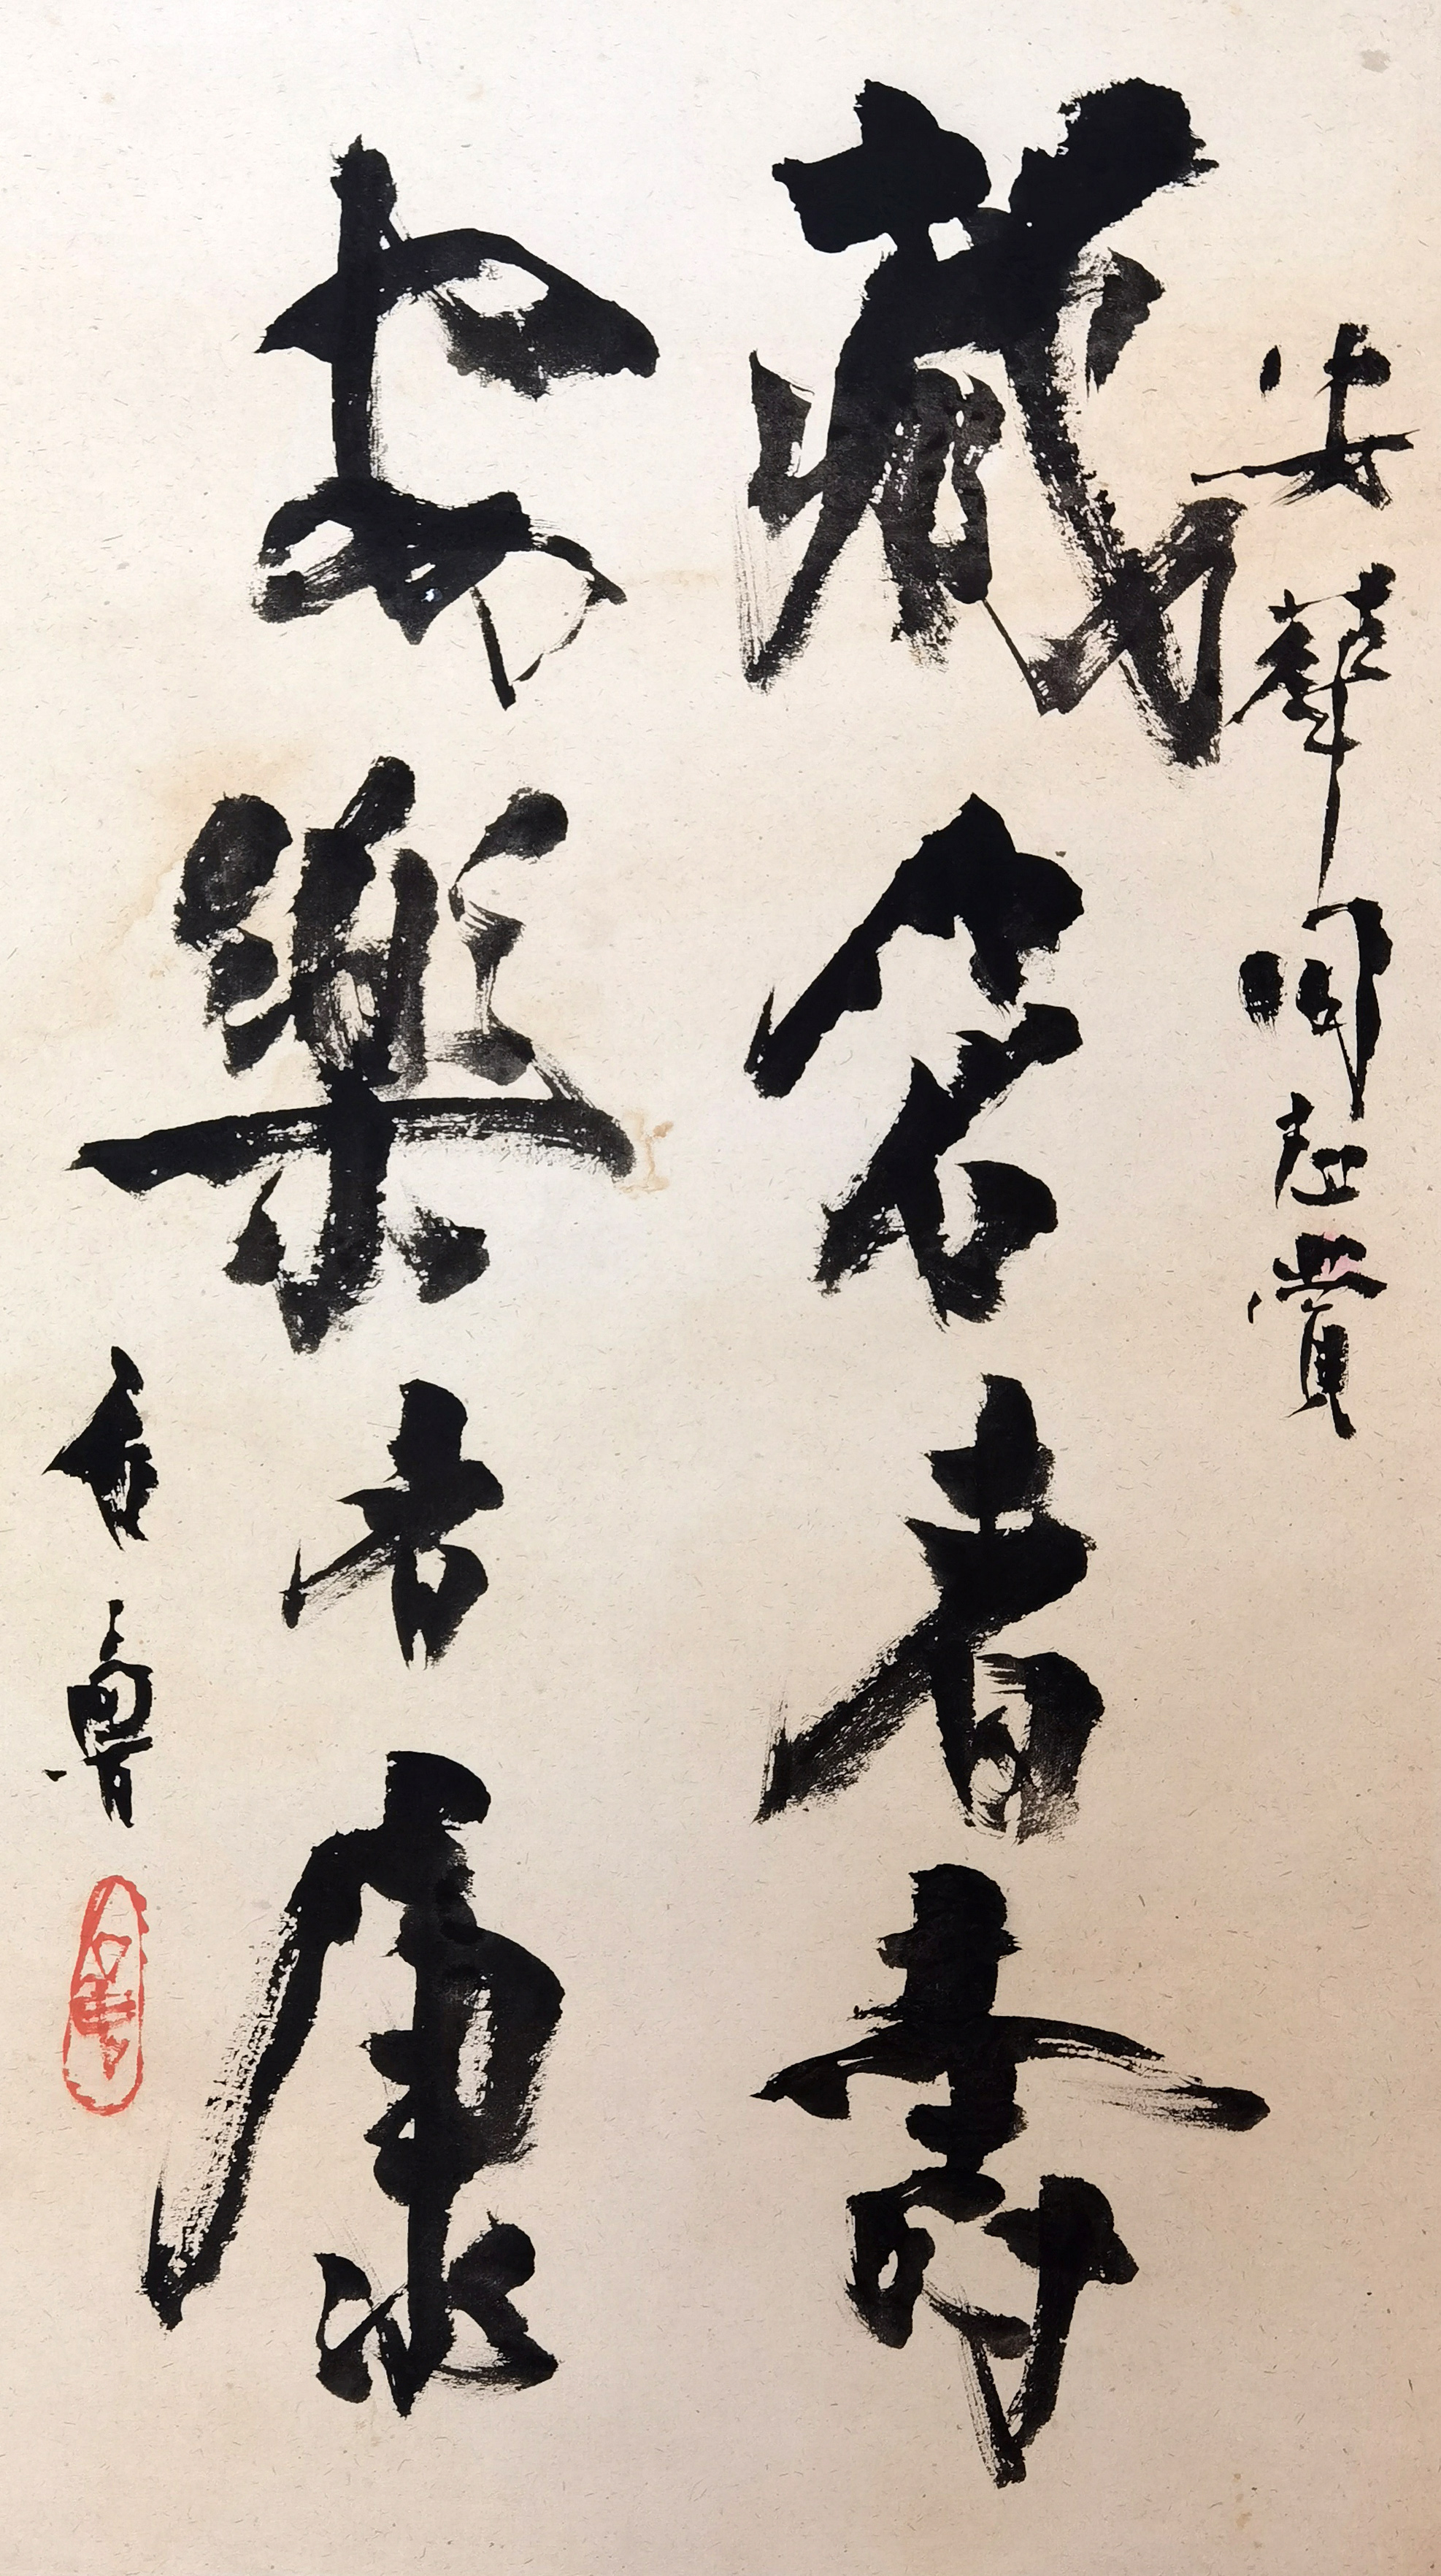 安華同志賞
藏名者壽
安樂者康
魯